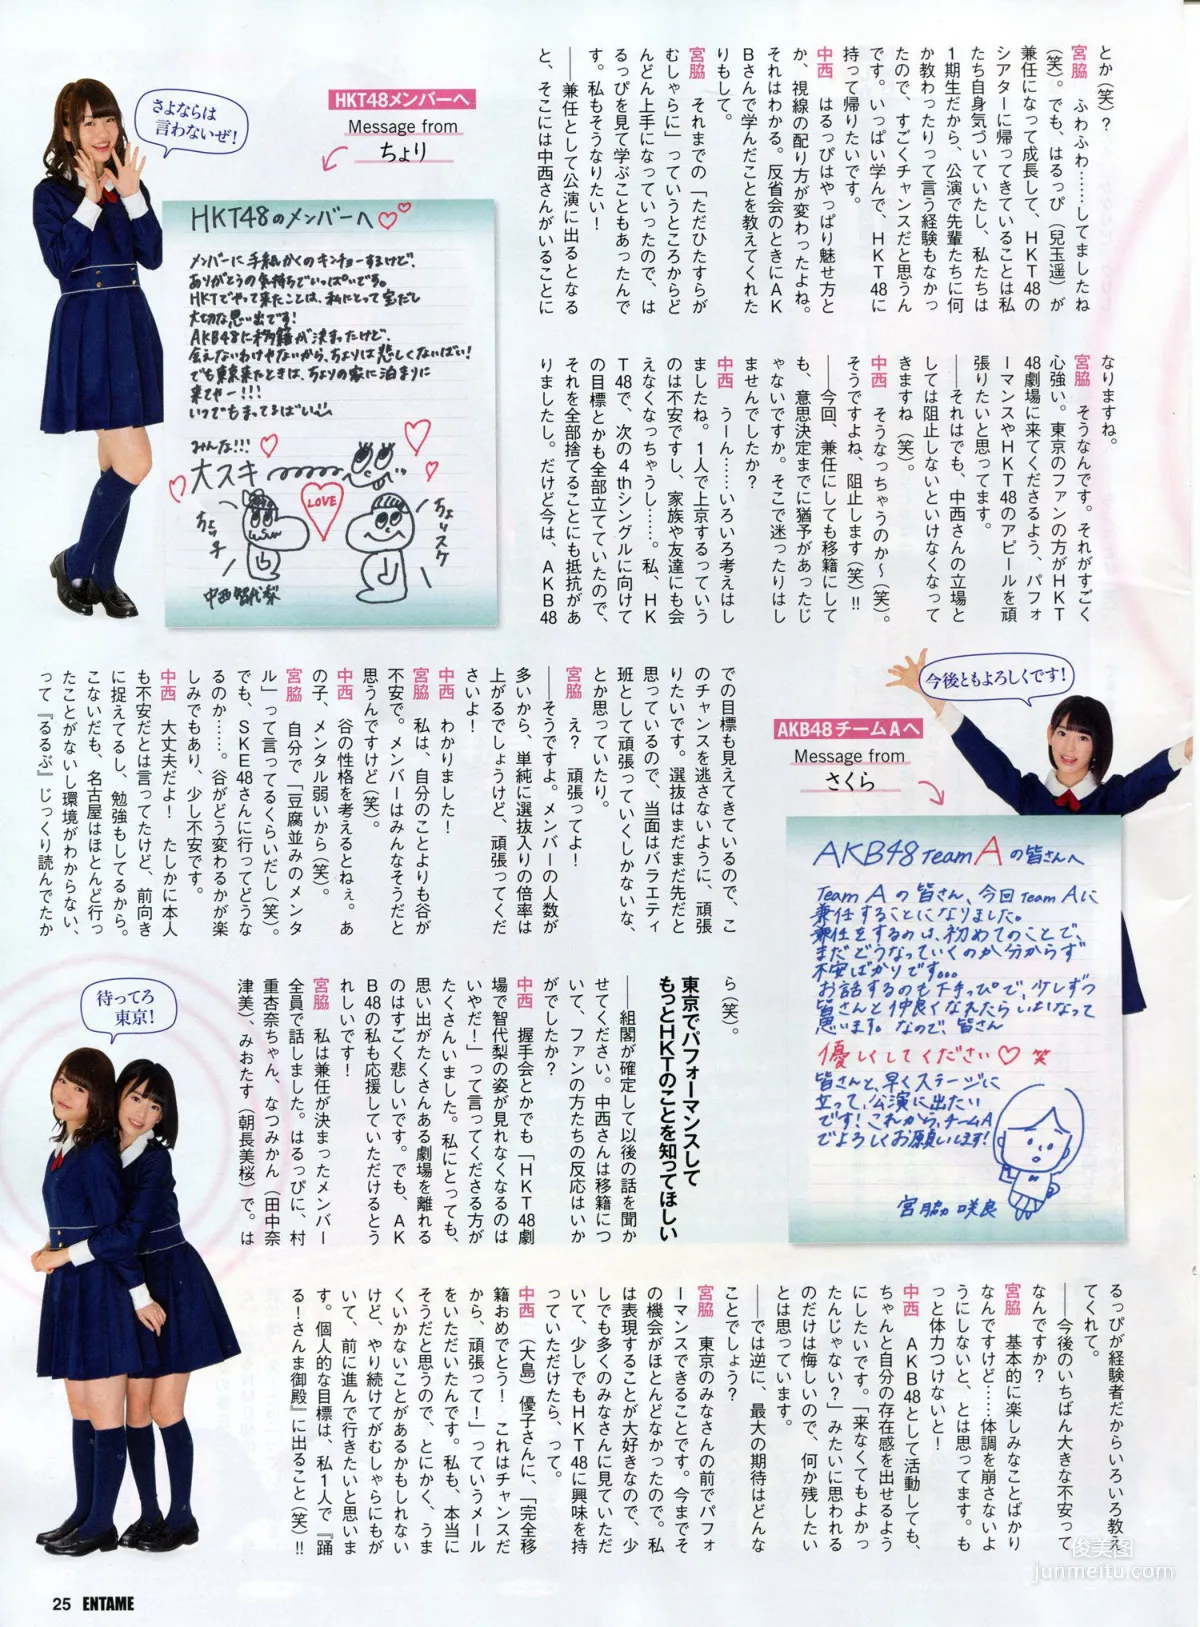 とか（笑）？
宮脇　ふわふわ……してましたね
（笑）。でも、はるっぴ（兒玉遥）が
兼任になって成長して、HKT48の
シアターに帰ってきていることは私
たち自身気づいていたし、私たちは
1期生だから、公演で先輩たちに何
か教わったりって言う経験もなかっ
たので、すごくチャンスだと思うん
です。いっぱい学んで、HKT48に
持って帰りたいです。
中西　はるっぴはやっぱり魅せ方と
か、視線の配り方が変わったよね。
それはわかる。反省会のときにAK
Bさんで学んだことを教えてくれた
りもして。
宮脇　それまでの「ただひたすらが
むしゃらに」っていうところからど
んどん上手になっていったので、は
るっぴを見て学ぶこともあったんで
す。私もそうなりたい！
――兼任として公演に出るとなる
と、そこには中西さんがいることに
なりますね。
宮脇　そうなんです。それがすごく
心強い。東京のファンの方がHKT
48劇場に来てくださるよう、パフォ
ーマンスやHKT48のアピールを頑
張りたいと思ってます。
――それはでも、中西さんの立場と
しては阻止しないといけなくなって
きますね（笑）。
中西　そうなっちゃうのか～（笑）。
そうですよね、阻止します（笑）!!
――今回、兼任にしても移籍にして
も、意思決定までに猶予があったじ
ゃないですか。そこで迷ったりはし
ませんでしたか？
中西　うーん……いろいろ考えはし
ましたね。1人で上京するっていう
のは不安ですし、家族や友達にも会
えなくなっちゃうし……。私、HK
T48で、次の4thシングルに向けて
の目標とかも全部立てていたので、
それを全部捨てることにも抵抗があ
りましたし。だけど今は、AKB48
HKT48メンバーへ
Message from
ちょり
さよならは
言わないぜ！
HKT48のメンバーへ♡♡
メンバーに手紙かくのキンチョーするけど、
ありがとうの気持ちでいっぱいです。
HKTでやって来たことは、私にとって宝だし
大切な思い出です！
AKB48に移籍が決まったけど、
会えないわけやないから、ちょりは悲しくないばい！
でも東京来たときは、ちょりの家に泊まりに
来てやー！！！
いつでもまってるばい
みんな!!!
大スキ
LOVE
ちょッ子
ちょリスケ
中西智代梨
での目標も見えてきているので、こ
のチャンスを逃さないように、頑張
りたいです。選抜はまだまだ先だと
思っているので、当面はバラエティ
班として頑張っていくしかないな、
とか思っていたり。
宮脇　え？　頑張ってよ！
――そうですよ。メンバーの人数が
多いから、単純に選抜入りの倍率は
上がるでしょうけど、頑張ってくだ
さいよ！
中西　わかりました！
宮脇　私は、自分のことよりも谷が
不安で。メンバーはみんなそうだと
思うんですけど（笑）。
中西　谷の性格を考えるとねぇ。あ
の子、メンタル弱いから（笑）。
宮脇　自分で「豆腐並みのメンタ
ル」って言ってるくらいだし（笑）。
でも、SKE48さんに行ってどうな
るのか……。谷がどう変わるかが楽
しみでもあり、少し不安です。
中西　大丈夫だよ！　たしかに本人
も不安だとは言ってたけど、前向き
に捉えてるし、勉強もしてるから。
こないだも、名古屋はほとんど行っ
たことがないし環境がわからない、
って『るるぶ』じっくり読んでたか
今後ともよろしくです！
AKB48チームAへ
Message from
さくら
AKB48 Team A の皆さんへ
Team A の皆さん、今回 Team A に
兼任することになりました。
兼任をするのは、初めてのことで、
まだどうなっていくのか分からず
不安ばかりです。。。
お話するのも下手っぴで、少しずつ
皆さんと仲良くなれたらいいなって
思います。なので、皆さん
優しくしてください♡ 笑
皆さんと、早くステージに
立って、公演に出たい
です！これから、チームA
でよろしくお願いします！
宮脇咲良
ら（笑）。
東京でパフォーマンスして
もっとHKTのことを知ってほしい
――組閣が確定して以後の話を聞か
せてください。中西さんは移籍につ
いて、ファンの方たちの反応はいか
がでしたか？
中西　握手会とかでも「HKT48劇
場で智代梨の姿が見れなくなるのは
いやだ！」って言ってくださる方が
たくさんいました。私にとっても、
思い出がたくさんある劇場を離れる
のはすごく悲しいです。でも、AK
B48の私も応援していただけるとう
れしいです！
宮脇　私は兼任が決まったメンバー
全員で話しました。はるっぴに、村
重杏奈ちゃん、なつみかん（田中奈
津美）、みおたす（朝長美桜）で。は
待ってろ
東京！
るっぴが経験者だからいろいろ教え
てくれて。
――今後のいちばん大きな不安って
なんですか？
宮脇　基本的に楽しみなことばかり
なんですけど……体調を崩さないよ
うにしないと、とは思ってます。も
っと体力つけないと！
中西　AKB48として活動しても、
ちゃんと自分の存在感を出せるよう
にしたいです。「来なくてもよかっ
たんじゃない？」みたいに思われる
のだけは悔しいので、何か残したい
とは思っています。
――では逆に、最大の期待はどんな
ことでしょう？
宮脇　東京のみなさんの前でパフォ
ーマンスできることです。今までそ
の機会がほとんどなかったので。私
は表現することが大好きなので、少
しでも多くのみなさんに見ていただ
いて、少しでもHKT48に興味を持
っていただけたら、って。
中西　（大島）優子さんに、「完全移
籍おめでとう！　これはチャンスだ
から、頑張って！」っていうメール
をいただいたんです。私も、本当に
そうだと思うので、とにかく、うま
くいかないことがあるかもしれない
けど、やり続けてがむしゃらにもが
いて、前に進んで行きたいと思いま
す。個人的な目標は、私1人で『踊
る！さんま御殿』に出ること（笑）!!
25 ENTAME
俊美图
junmeitu.com